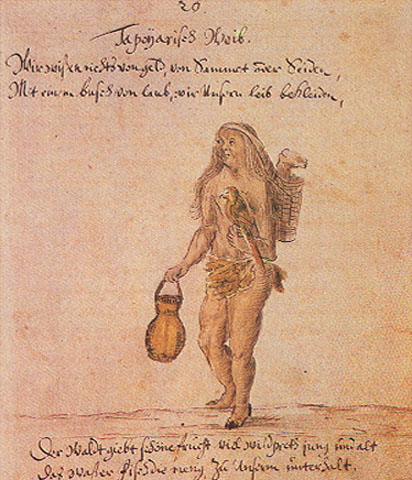 20
Tapoyarisch Weib.
Wir wißen nichts von geld, von Sammet oder Seiden,
Mit einem busch von laub, wir Unsern leib bekleiden,
Der Waldt giebt schöne frücht viel wildprets jung und alt
Das Waßer fische die meng zu Unserm unterhalt.